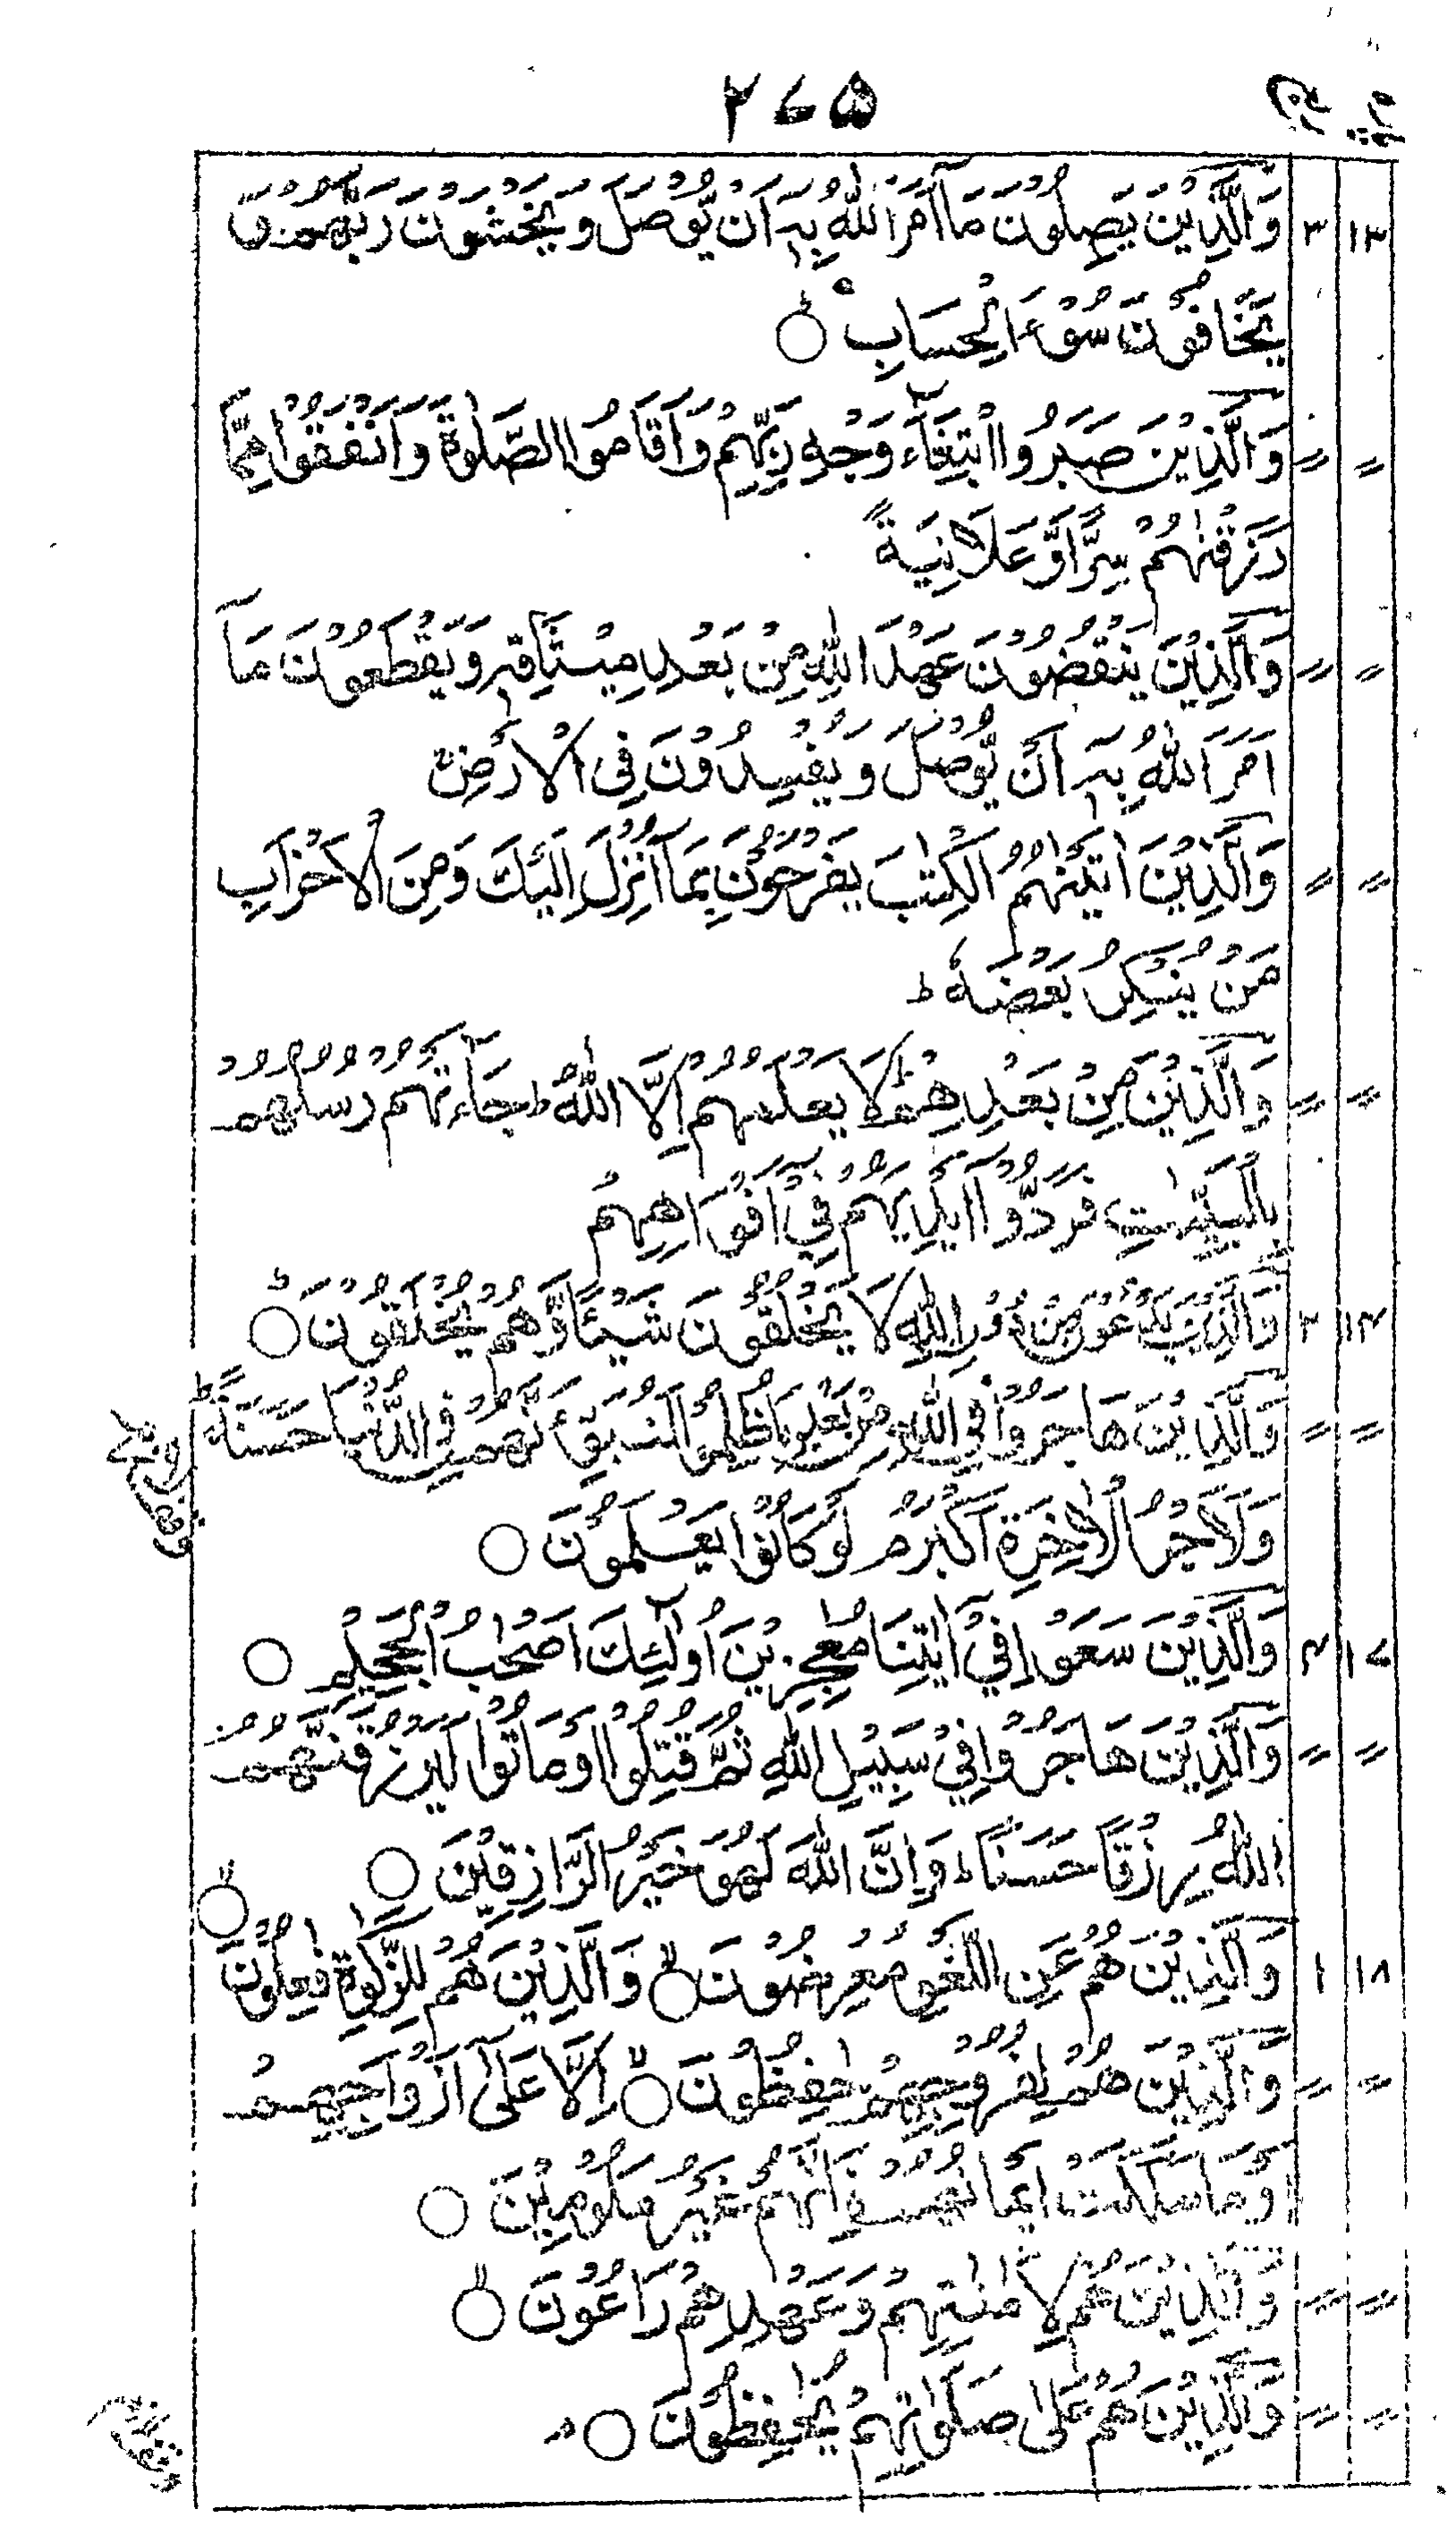 ۲۷۵
وَالَّذِيْنَ يَصِلُوْنَ مَآ اَمَرَ اللّٰهُ بِهٖٓ اَنْ يُّوْصَلَ وَيَخْشَوْنَ رَبَّهُمْ وَ ۳ ۱۳
يَخَافُوْنَ سُوْٓءَ الْحِسَابِ ○
وَالَّذِيْنَ صَبَرُوا ابْتِغَآءَ وَجْهِ رَبِّهِمْ وَاَقَامُوا الصَّلٰوةَ وَاَنْفَقُوْا مِمَّا 〃 〃
رَزَقْنٰهُمْ سِرًّا وَّعَلَانِيَةً
وَالَّذِيْنَ يَنْقُضُوْنَ عَهْدَ اللّٰهِ مِنْۢ بَعْدِ مِيْثَاقِهٖ وَيَقْطَعُوْنَ مَآ 〃 〃
اَمَرَ اللّٰهُ بِهٖٓ اَنْ يُّوْصَلَ وَيُفْسِدُوْنَ فِى الْاَرْضِ
وَالَّذِيْنَ اٰتَيْنٰهُمُ الْكِتٰبَ يَفْرَحُوْنَ بِمَآ اُنْزِلَ اِلَيْكَ وَمِنَ الْاَحْزَابِ 〃 〃
مَنْ يُّنْكِرُ بَعْضَهٗ ط
وَالَّذِيْنَ مِنْۢ بَعْدِهِمْ لَا يَعْلَمُهُمْ اِلَّا اللّٰهُ ط جَآءَتْهُمْ رُسُلُهُمْ 〃 〃
بِالْبَيِّنٰتِ فَرَدُّوْٓا اَيْدِيَهُمْ فِيْٓ اَفْوَاهِهِمْ
وَالَّذِيْنَ يَدْعُوْنَ مِنْ دُوْنِ اللّٰهِ لَا يَخْلُقُوْنَ شَيْئًا وَّهُمْ يُخْلَقُوْنَ ○ ۲ ۱۴
وَالَّذِيْنَ هَاجَرُوْا فِى اللّٰهِ مِنْۢ بَعْدِ مَا ظُلِمُوْا لَنُبَوِّئَنَّهُمْ فِى الدُّنْيَا حَسَنَةً ط 〃 〃
وَلَاَجْرُ الْاٰخِرَةِ اَكْبَرُ م لَوْ كَانُوْا يَعْلَمُوْنَ ○
وَالَّذِيْنَ سَعَوْا فِيْٓ اٰيٰتِنَا مُعٰجِزِيْنَ اُولٰٓئِكَ اَصْحٰبُ الْجَحِيْمِ ○ ۴ ۱۷
وَالَّذِيْنَ هَاجَرُوْا فِيْ سَبِيْلِ اللّٰهِ ثُمَّ قُتِلُوْٓا اَوْ مَاتُوْا لَيَرْزُقَنَّهُمُ 〃 〃
اللّٰهُ رِزْقًا حَسَنًا ط وَاِنَّ اللّٰهَ لَهُوَ خَيْرُ الرّٰزِقِيْنَ ○
وَالَّذِيْنَ هُمْ عَنِ اللَّغْوِ مُعْرِضُوْنَ ○ وَالَّذِيْنَ هُمْ لِلزَّكٰوةِ فٰعِلُوْنَ ○ ۱ ۱۸
وَالَّذِيْنَ هُمْ لِفُرُوْجِهِمْ حٰفِظُوْنَ ○ اِلَّا عَلٰٓى اَزْوَاجِهِمْ 〃 〃
اَوْ مَا مَلَكَتْ اَيْمَانُهُمْ فَاِنَّهُمْ غَيْرُ مَلُوْمِيْنَ ○
وَالَّذِيْنَ هُمْ لِاَمٰنٰتِهِمْ وَعَهْدِهِمْ رَاعُوْنَ ○ 〃 〃
وَالَّذِيْنَ هُمْ عَلٰى صَلَوٰتِهِمْ يُحَافِظُوْنَ ○ م 〃 〃